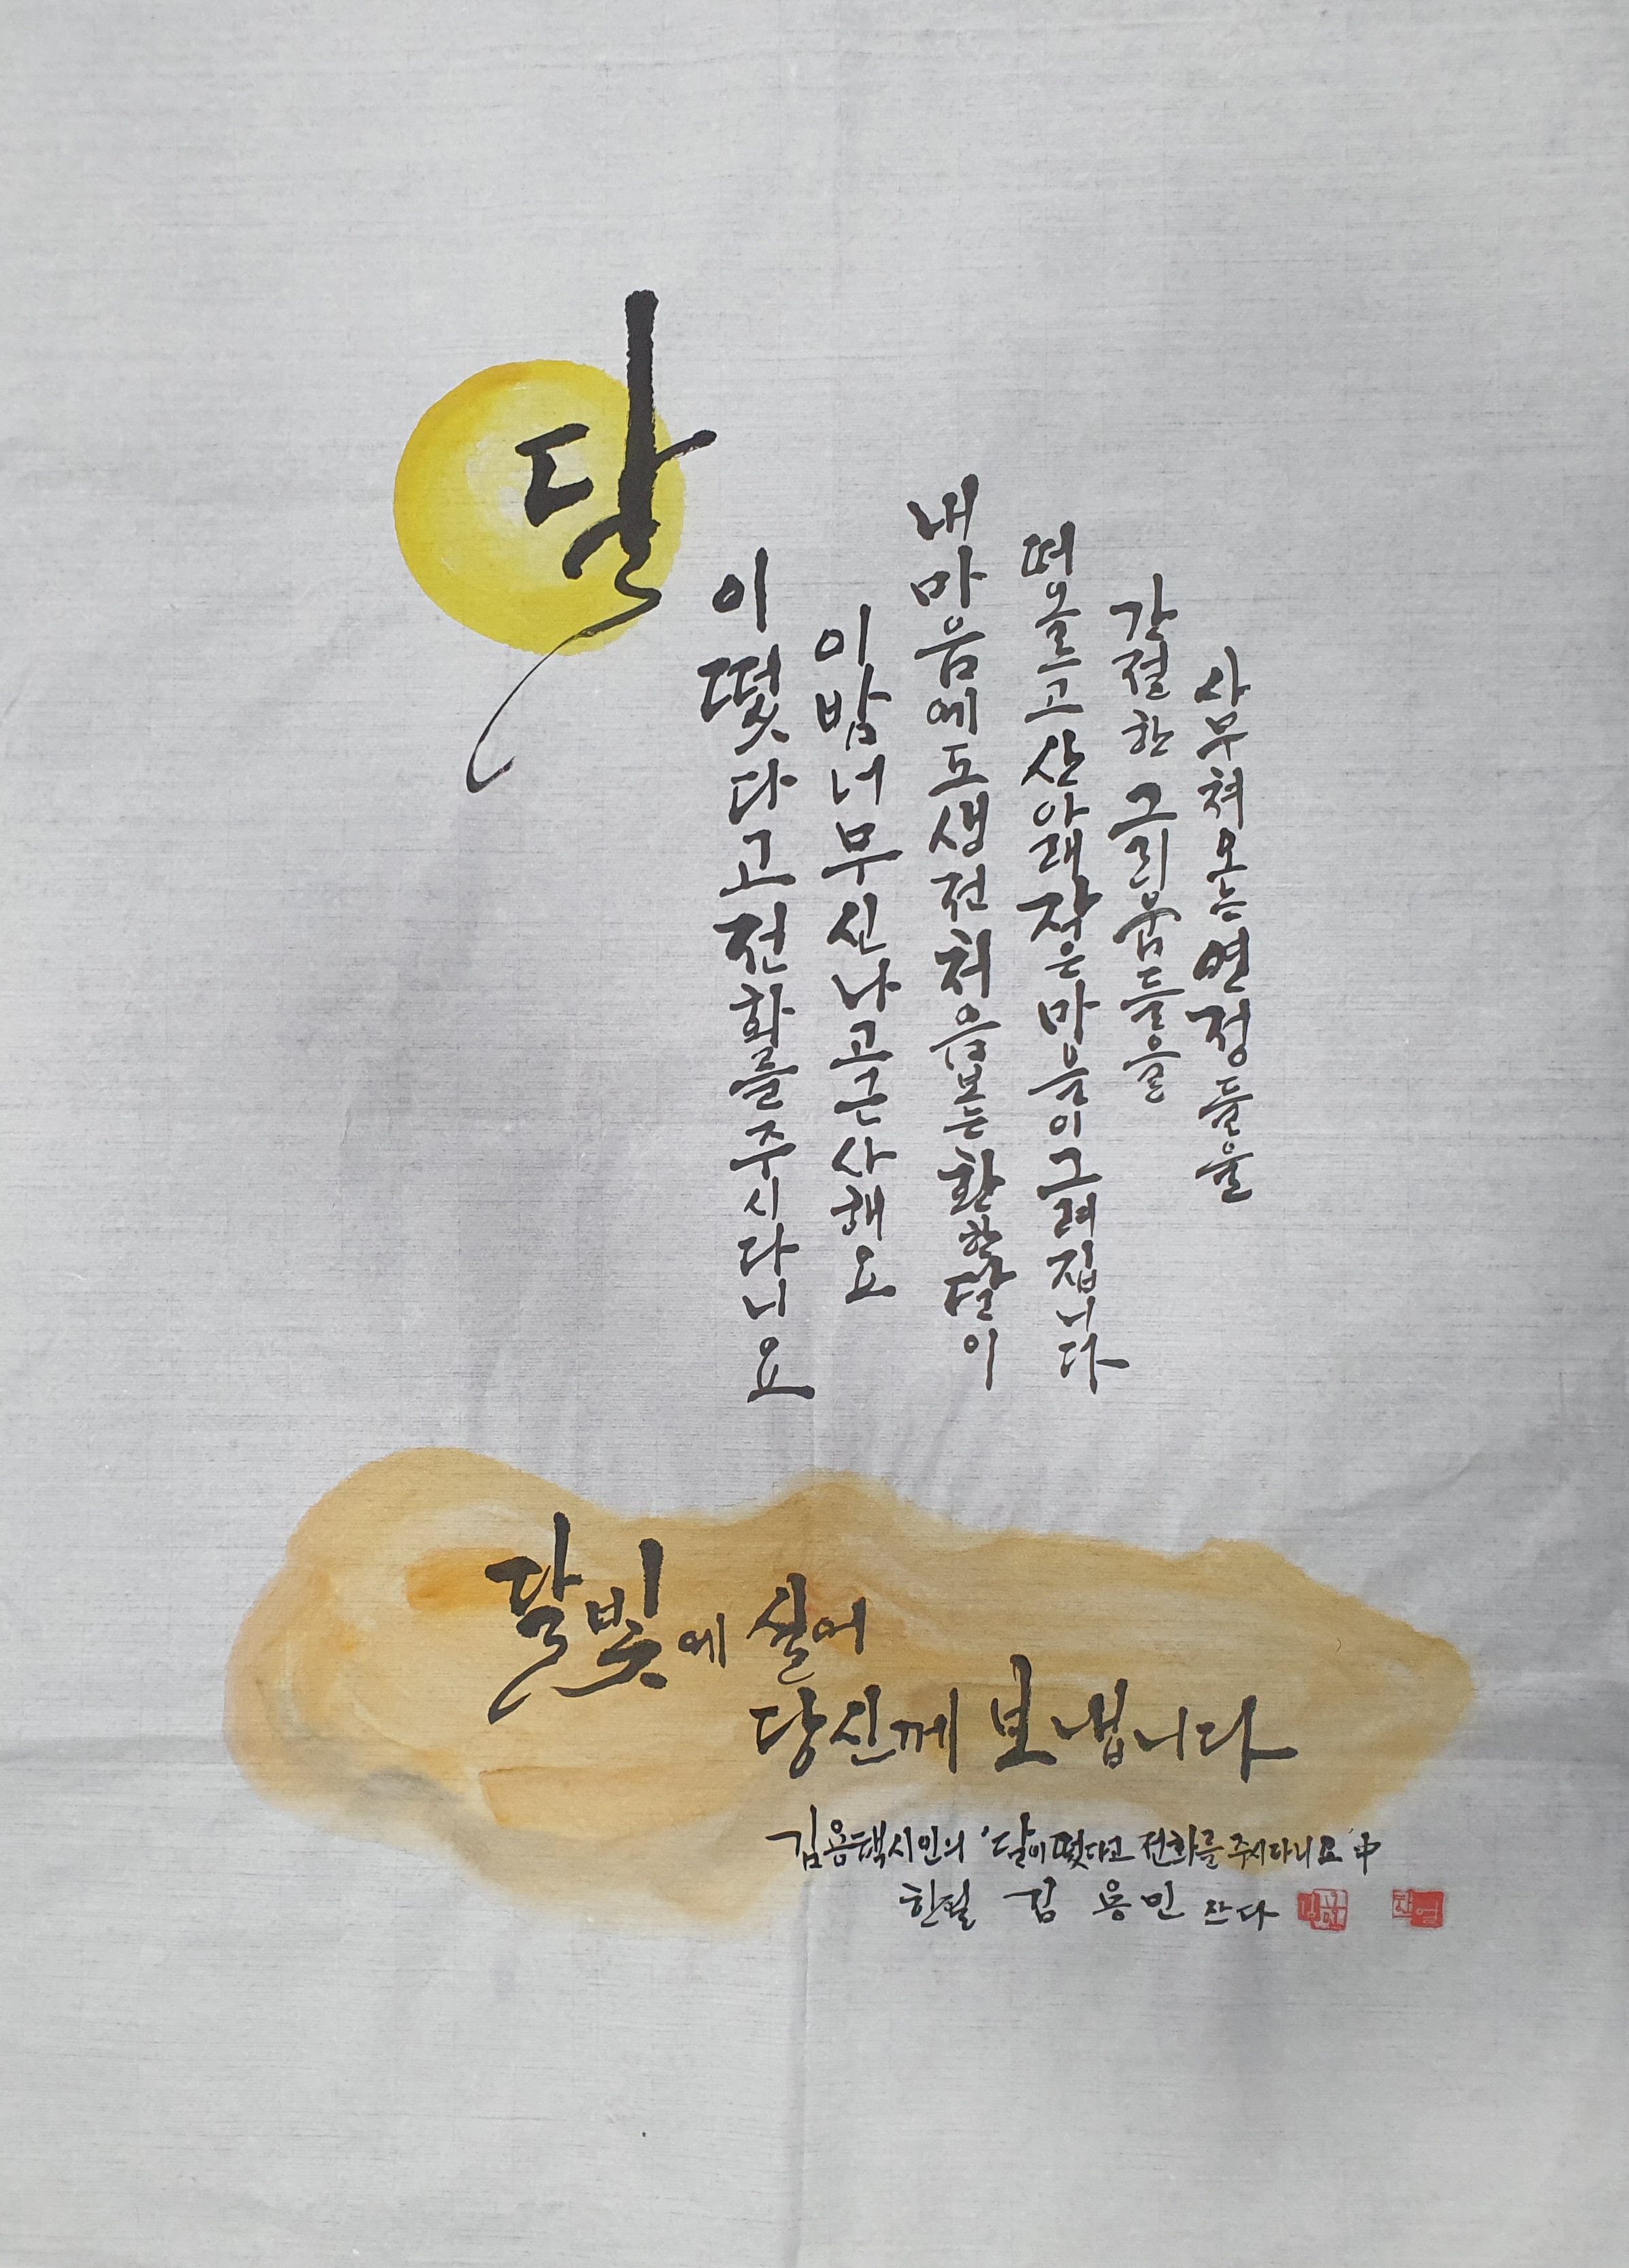 달이떳다고전화를주시다니요
이밤너무신나고근사해요
내마음에도생전처음보는환한달이
떠오르고산아래작은마을이그려집니다
간절한그리움들을
사무쳐오는연정들을
달빛에 실어
당신께 보냅니다
김용택시인의 '달이떳다고 전화를 주시다니요' 中
한필 김 용 민